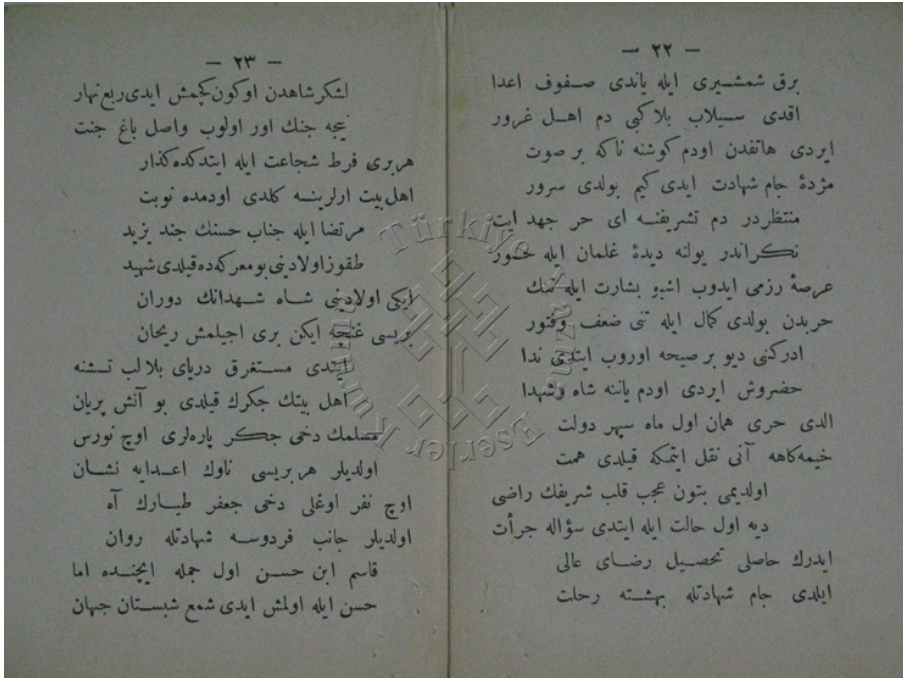 — ٢٢ —
برق شمشیری ایله یاندی صفوف اعدا
اقدی سیلاب بلا کبی دم اهل غرور
ایردی هاتفدن اودم کوشنه ناکه بر صوت
مژدهٔ جام شهادت ایدی کیم بولدی سرور
منتظردر دم تشریفنه ای حر جهد ایت
نکراندر یولنه دیدهٔ غلمان ایله حور
عرصهٔ رزمی ایدوب اشبو بشارت ایله تنك
حربدن بولدی کمال ایله تنی ضعف وفتور
ادرکنی دیو بر صیحه اوروب ایتدی ندا
حضروش ایردی اودم یاننه شاه شهدا
الدی حری همان اول ماه سپهر دولت
خیمه‌کاهه آنی نقل ایتمکه قیلدی همت
اولدیمی بتون عجب قلب شریفك راضی
دیه اول حالت ایله ایتدی سؤاله جرأت
ایدرك حاصلی تحصیل رضای عالی
ایلدی جام شهادتله بهشته رحلت
— ٢٣ —
لشکر شاهدن اوکون کچمش ایدی ربع نهار
نیجه جنك اور اولوب واصل باغ جنت
هربری فرط شجاعت ایله ایتدکده کذار
اهل بیت ارلرینه کلدی اودمده نوبت
مرتضا ایله جناب حسنك جند یزید
طقوز اولادینی بو معرکه‌ده قیلدی شهید
ایکی اولادینی شاه شهدانك دوران
بریسی غنچه ایکن بری اجیلمش ریحان
ایتدی مستغرق دریای بلا لب تشنه
اهل بیتك جکرك قیلدی بو آتش بریان
مسلمك دخی جکر پاره‌لری اوچ نورس
اولدیلر هربریسی ناوك اعدایه نشان
اوچ نفر اوغلی دخی جعفر طیارك آه
اولدیلر جانب فردوسه شهادتله روان
قاسم ابن حسن اول جمله ایچنده اما
حسن ایله اولمش ایدی شمع شبستان جهان
Türkiye Yazma Eserler Kurumu